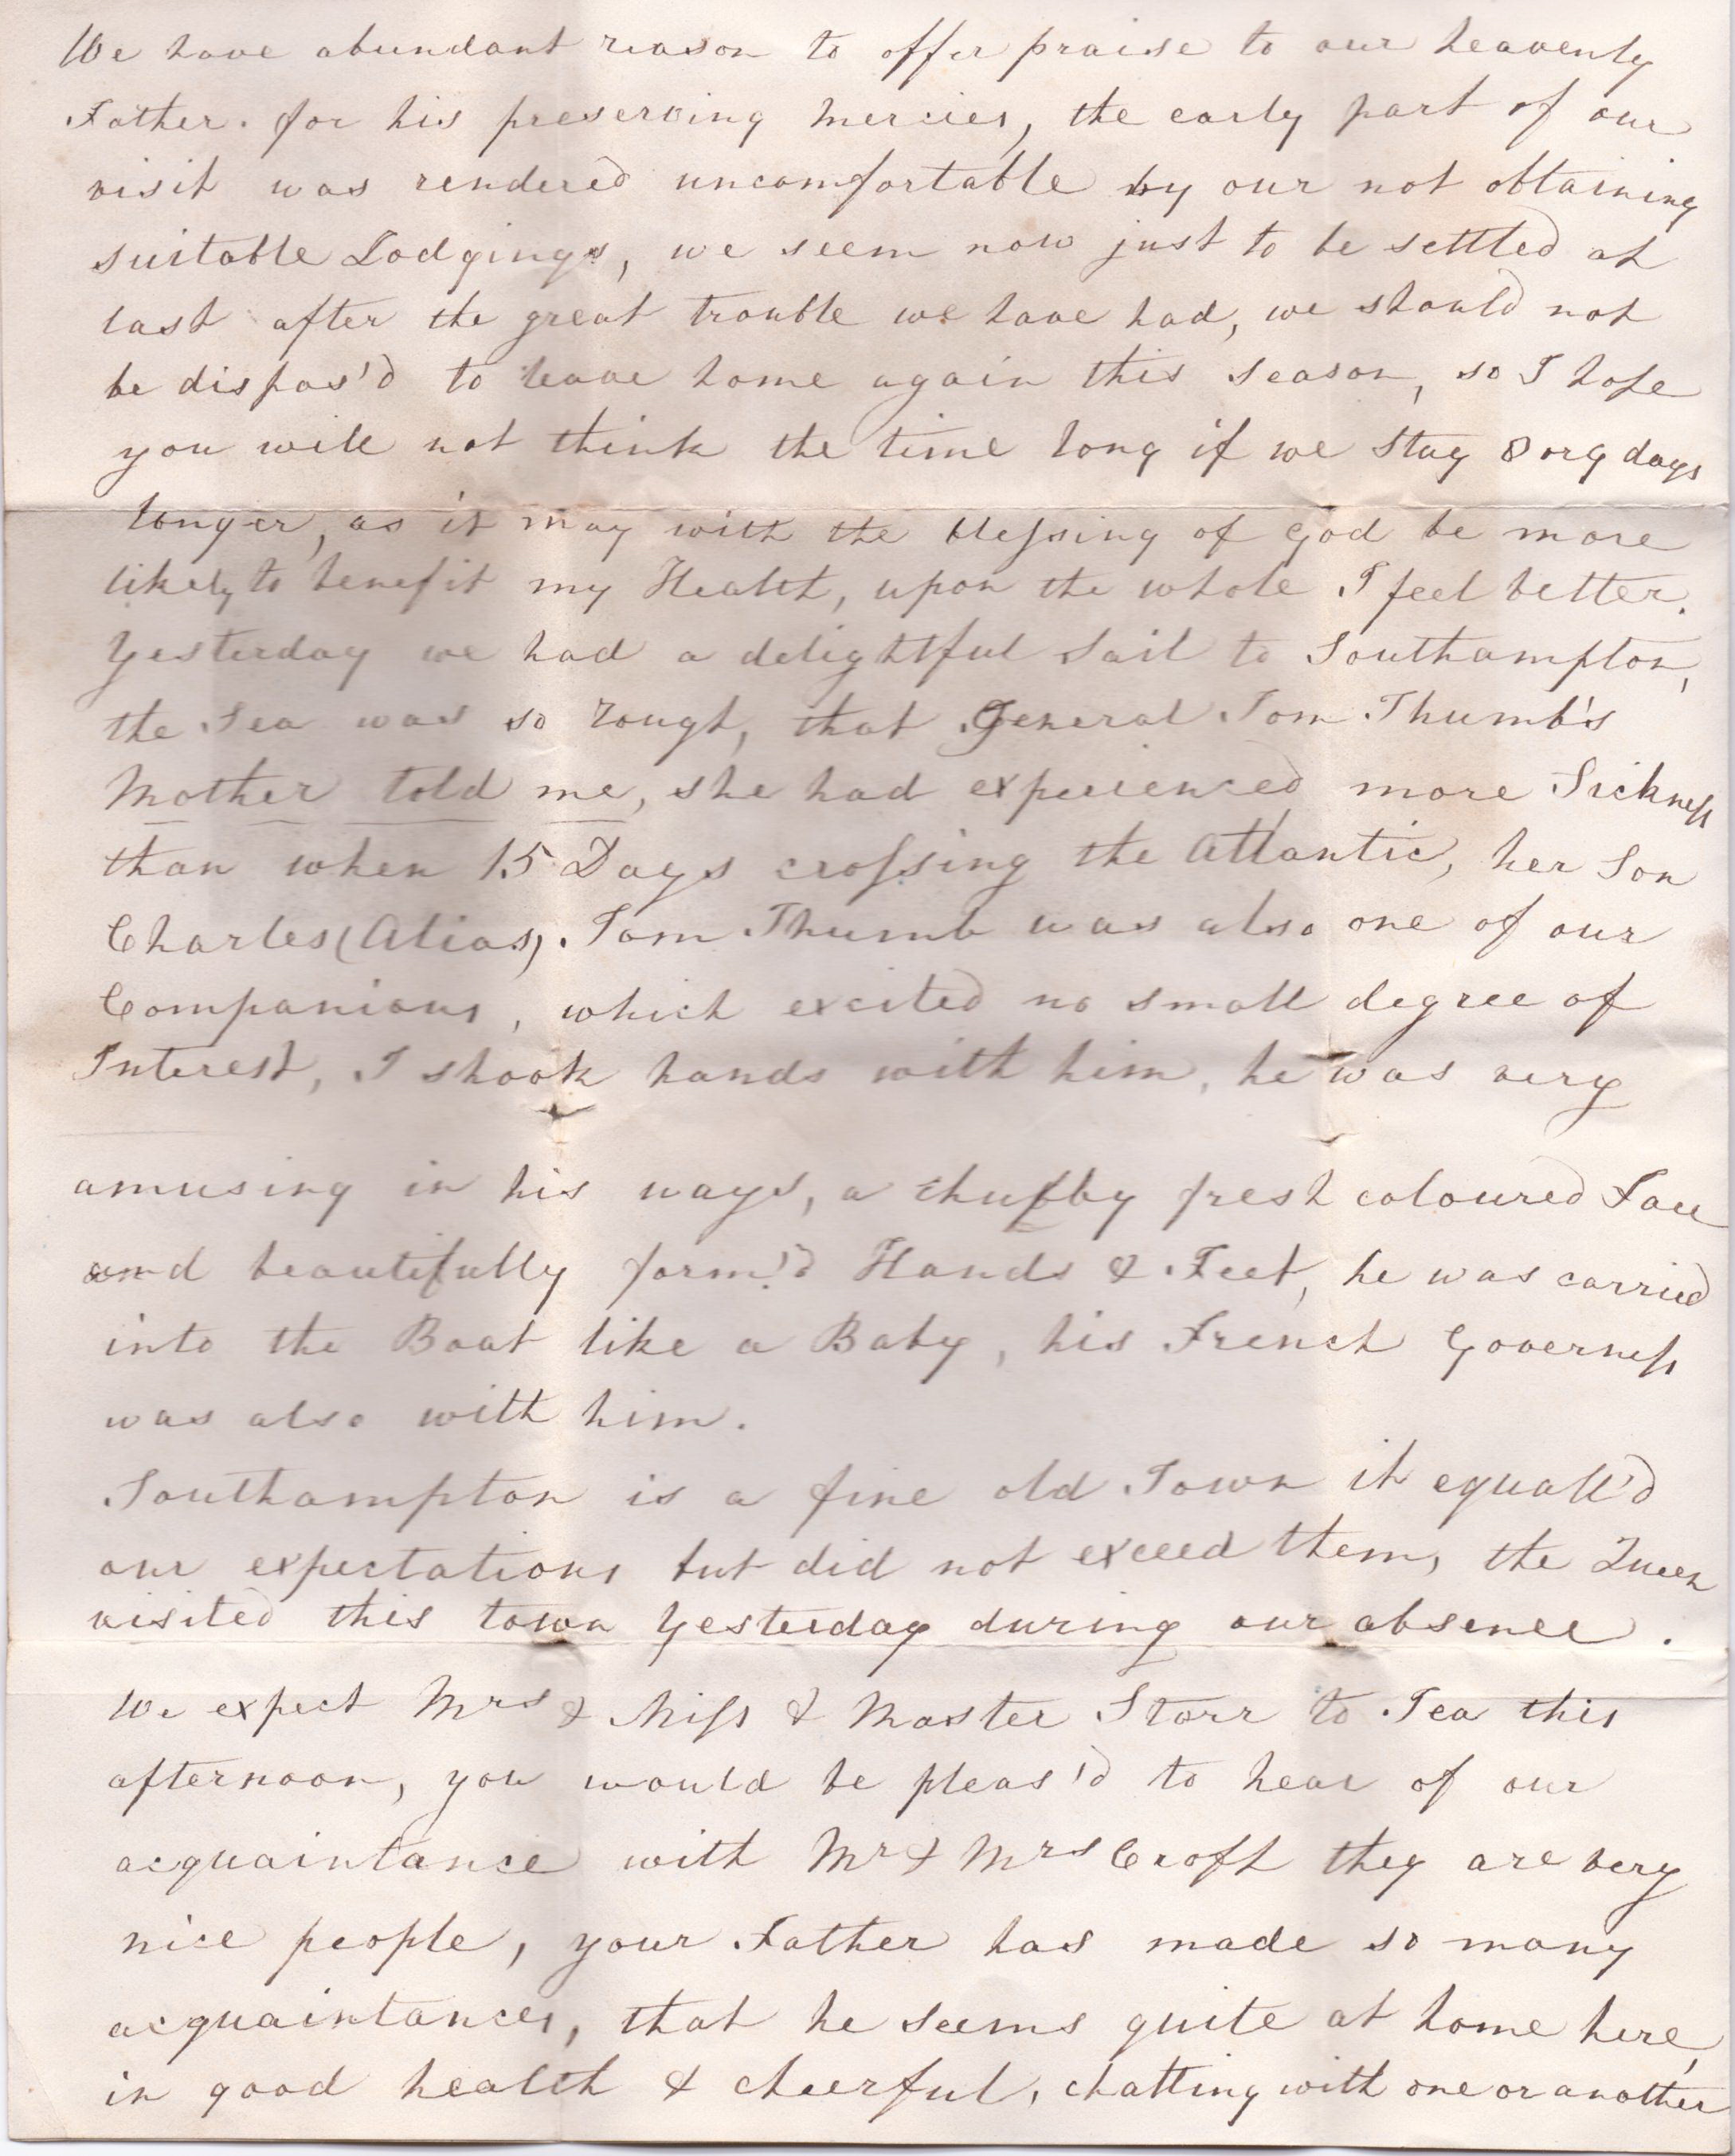 We have abundant reason to offer praise to our heavenly
Father. for his preserving mercies, the early part of our
visit was rendered uncomfortable by our not obtaining
suitable Lodgings, we seem now just to be settled at
last after the great trouble we have had, we should not
be dispos'd to leave home again this season, so I hope
you will not think the time long if we stay 8 or 9 days
longer, as it may with the blessing of God be more
likely to benefit my Health, upon the whole I feel better.
Yesterday we had a delightful Sail to Southampton,
the Sea was so rough, that General Tom Thumb's
Mother told me, she had experienced more Sickness
than when 15 Days crossing the Atlantic, her Son
Charles (Alias) Tom Thumb was also one of our
Companions, which excited no small degree of
Interest, I shook hands with him, he was very
amusing in his ways, a chubby fresh coloured Face
and beautifully form'd Hands & Feet, he was carried
into the Boat like a Baby, his French Governess
was also with him.
Southampton is a fine old Town it equall'd
our expectations but did not exceed them, the Queen
visited this town Yesterday during our absence.
We expect Mrs & Miss & Master Storr to Tea this
afternoon, you would be pleas'd to hear of our
acquaintance with Mr & Mrs Croft they are very
nice people, your Father has made so many
acquaintances, that he seems quite at home here,
in good health & cheerful, chatting with one or another